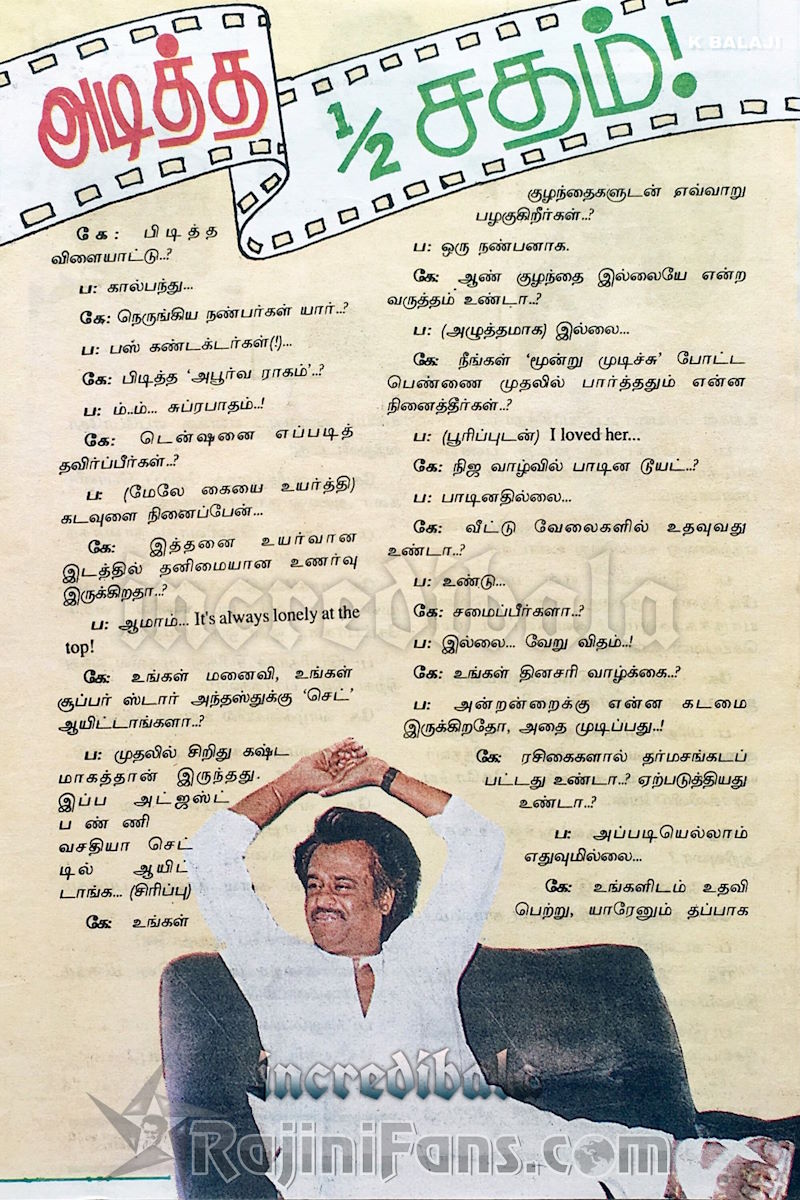 அடித்த
1/2 சதம்!
K BALAJI
கே: பிடித்த
விளையாட்டு..?
ப: கால்பந்து...
கே: நெருங்கிய நண்பர்கள் யார்..?
ப: பஸ் கண்டக்டர்கள்(!)...
கே: பிடித்த ‘அபூர்வ ராகம்’..?
ப: ம்..ம்... சுப்ரபாதம்..!
கே: டென்ஷனை எப்படித்
தவிர்ப்பீர்கள்..?
ப: (மேலே கையை உயர்த்தி)
கடவுளை நினைப்பேன்...
கே: இத்தனை உயர்வான
இடத்தில் தனிமையான உணர்வு
இருக்கிறதா..?
ப: ஆமாம்... It's always lonely at the
top!
கே: உங்கள் மனைவி, உங்கள்
சூப்பர் ஸ்டார் அந்தஸ்துக்கு ‘செட்’
ஆயிட்டாங்களா..?
ப: முதலில் சிறிது கஷ்ட
மாகத்தான் இருந்தது.
இப்ப அட்ஜஸ்ட்
பண்ணி
வசதியா செட்
டில் ஆயிட்
டாங்க... (சிரிப்பு)
கே: உங்கள்
குழந்தைகளுடன் எவ்வாறு
பழகுகிறீர்கள்..?
ப: ஒரு நண்பனாக.
கே: ஆண் குழந்தை இல்லையே என்ற
வருத்தம் உண்டா..?
ப: (அழுத்தமாக) இல்லை...
கே: நீங்கள் ‘மூன்று முடிச்சு’ போட்ட
பெண்ணை முதலில் பார்த்ததும் என்ன
நினைத்தீர்கள்..?
ப: (பூரிப்புடன்) I loved her...
கே: நிஜ வாழ்வில் பாடின டூயட்..?
ப: பாடினதில்லை...
கே: வீட்டு வேலைகளில் உதவுவது
உண்டா..?
ப: உண்டு...
கே: சமைப்பீர்களா..?
ப: இல்லை... வேறு விதம்..!
கே: உங்கள் தினசரி வாழ்க்கை..?
ப: அன்றன்றைக்கு என்ன கடமை
இருக்கிறதோ, அதை முடிப்பது..!
கே: ரசிகைகளால் தர்மசங்கடப்
பட்டது உண்டா..? ஏற்படுத்தியது
உண்டா..?
ப: அப்படியெல்லாம்
எதுவுமில்லை...
கே: உங்களிடம் உதவி
பெற்று, யாரேனும் தப்பாக
incredibala
incredibala
RajiniFans.com